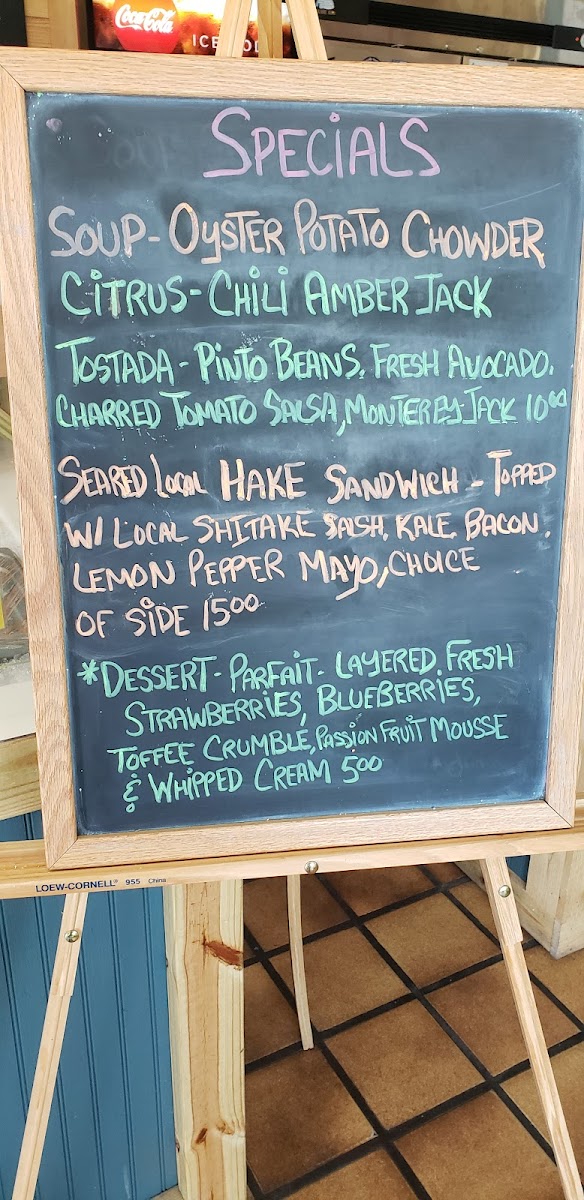 Coca-Cola
ICE
SPECiALS
SOUP - OYSTER POTATO CHOWDER
CiTRUS - CHiLi AMBER JACK
TOSTADA - PiNTO BEANS, FRESH AVOCADO,
CHARRED TOMATO SALSA, MONTEREY JACK 10⁰⁰
SEARED LOCAL HAKE SANDWICH - TOPPED
W/ LOCAL SHITAKE SALSA, KALE, BACON,
LEMON PEPPER MAYO, CHOICE
OF SiDE 15⁰⁰
*DESSERT - PARFAiT - LAYERED FRESH
STRAWBERRiES, BLUEBERRiES,
TOFFEE CRUMBLE, PASSiON FRUiT MOUSSE
& WHiPPED CREAM 5⁰⁰
LOEW-CORNELL® 955 China